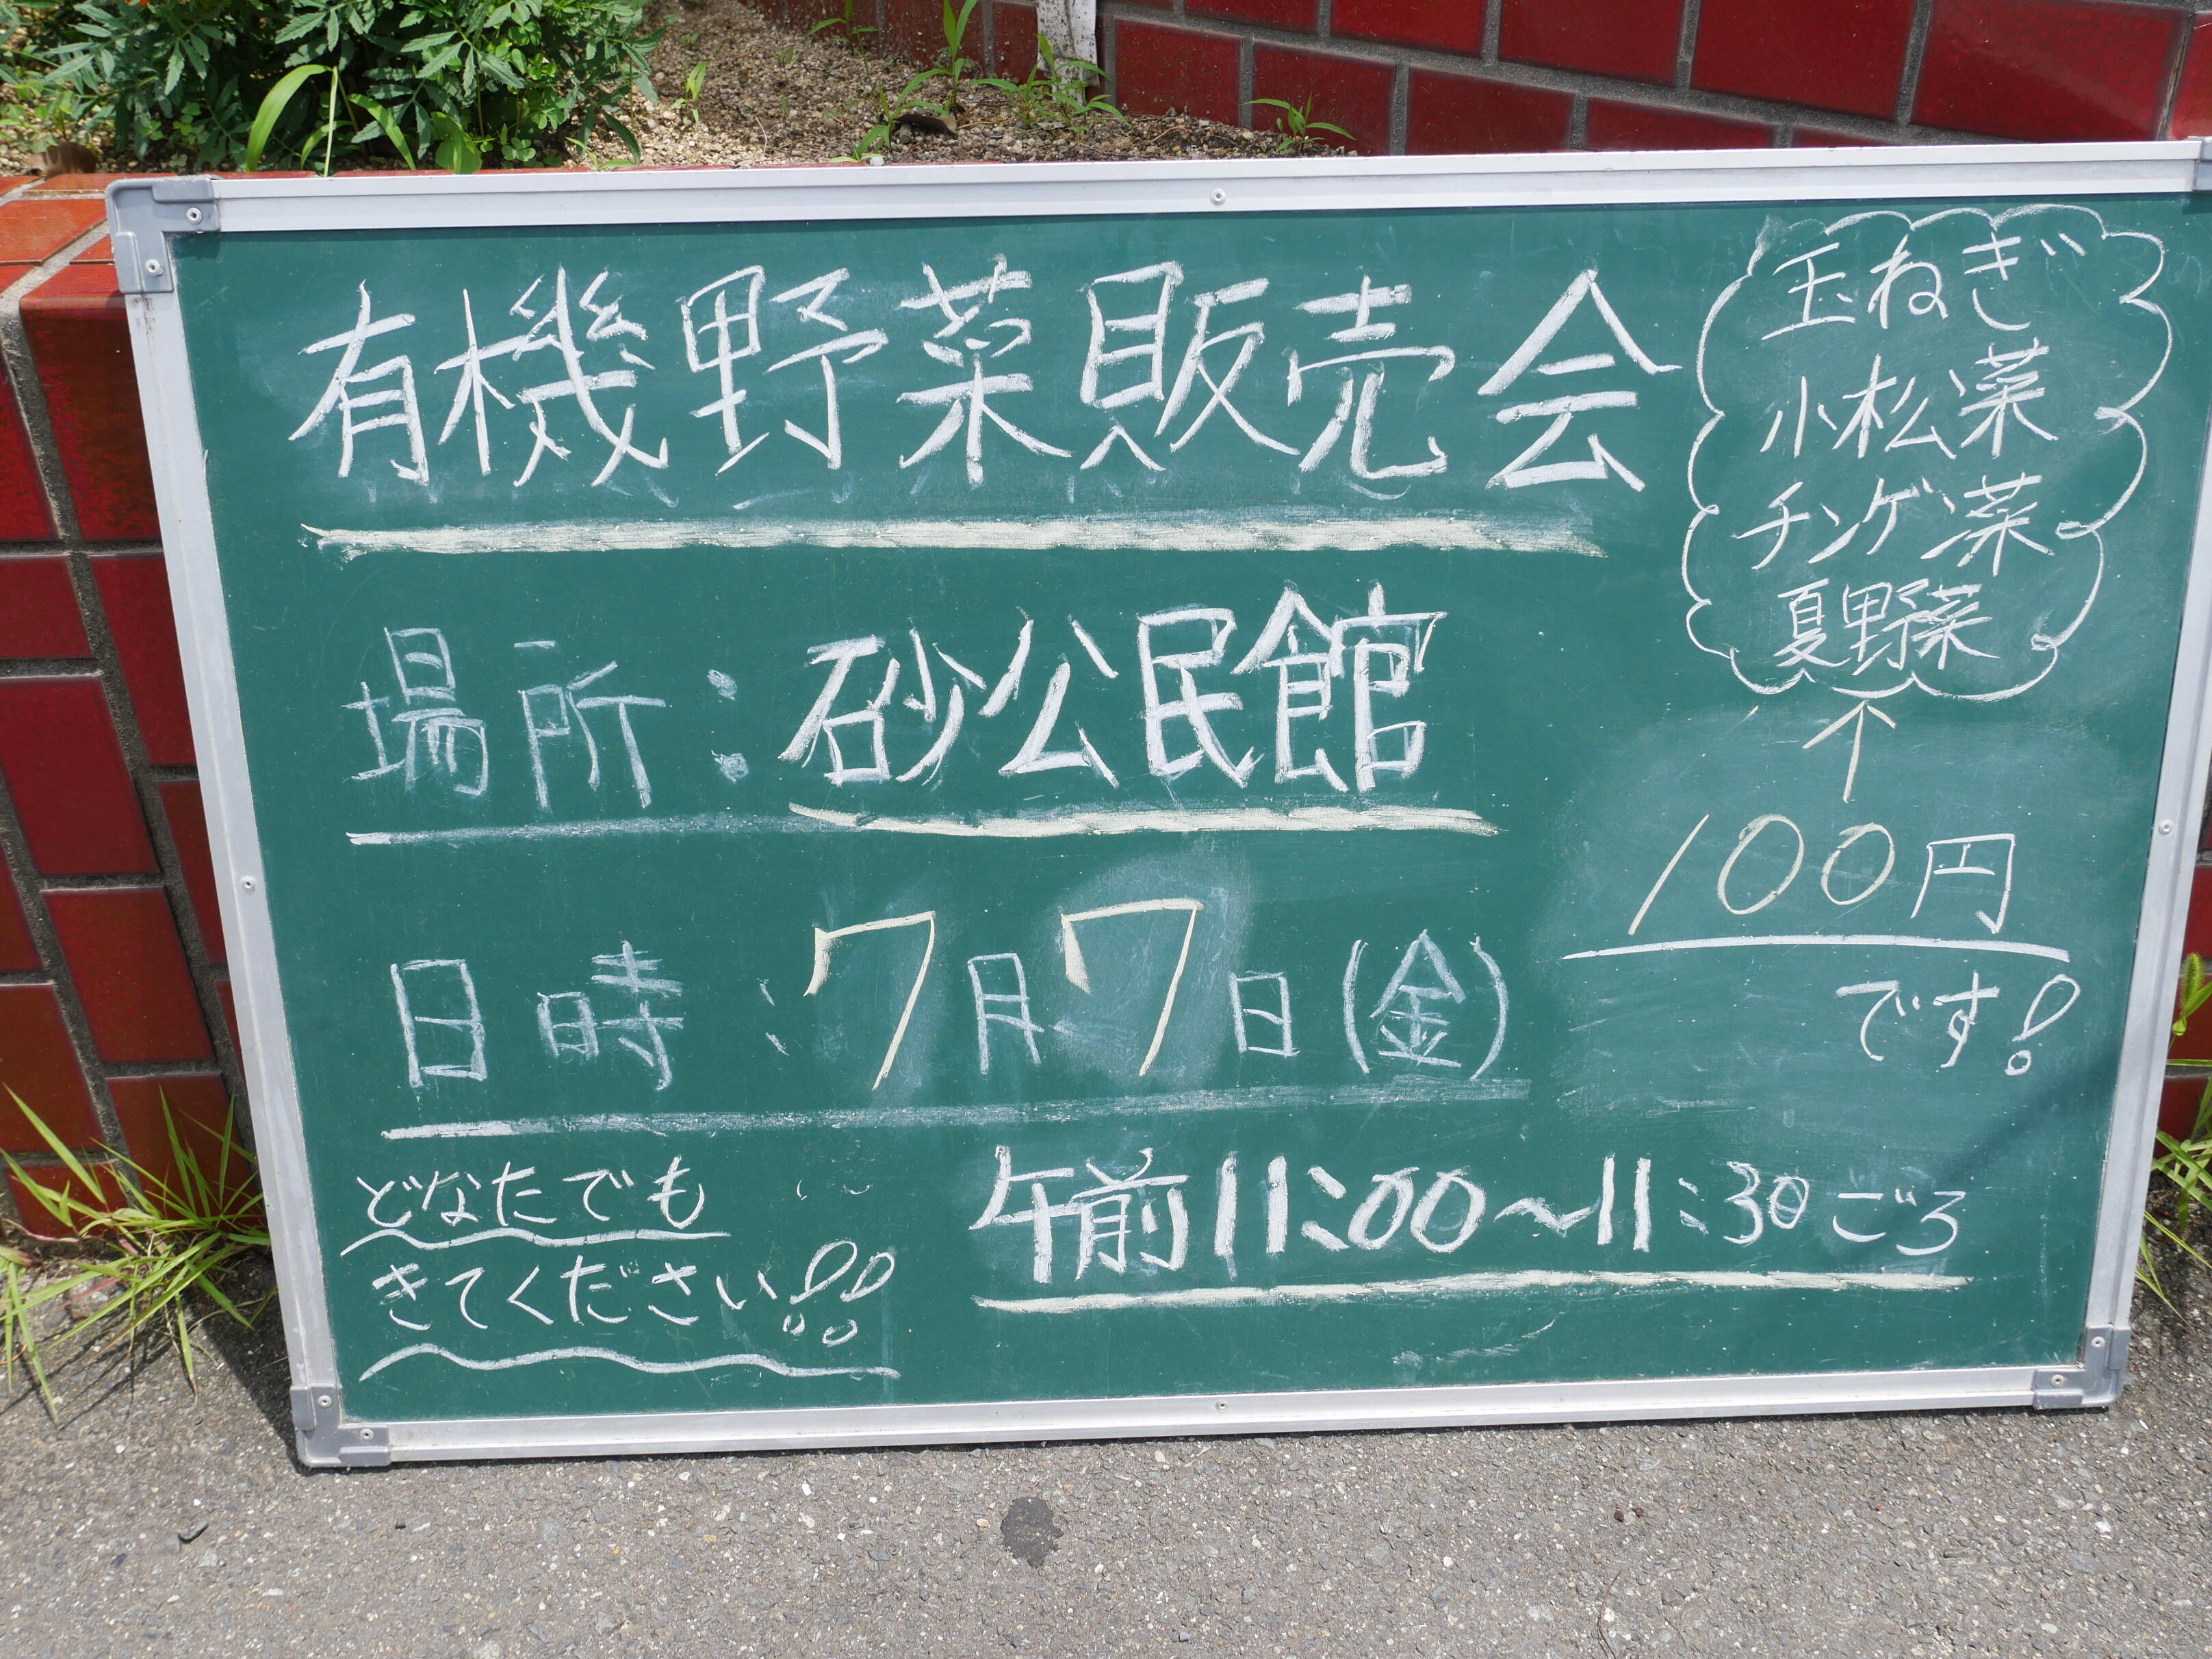 有機野菜販売会
玉ねぎ
小松菜
チンゲン菜
夏野菜
↑
100円
です!
場所:砂公民館
日時:7月7日(金)
午前11:00~11:30ごろ
どなたでも
きてください!!